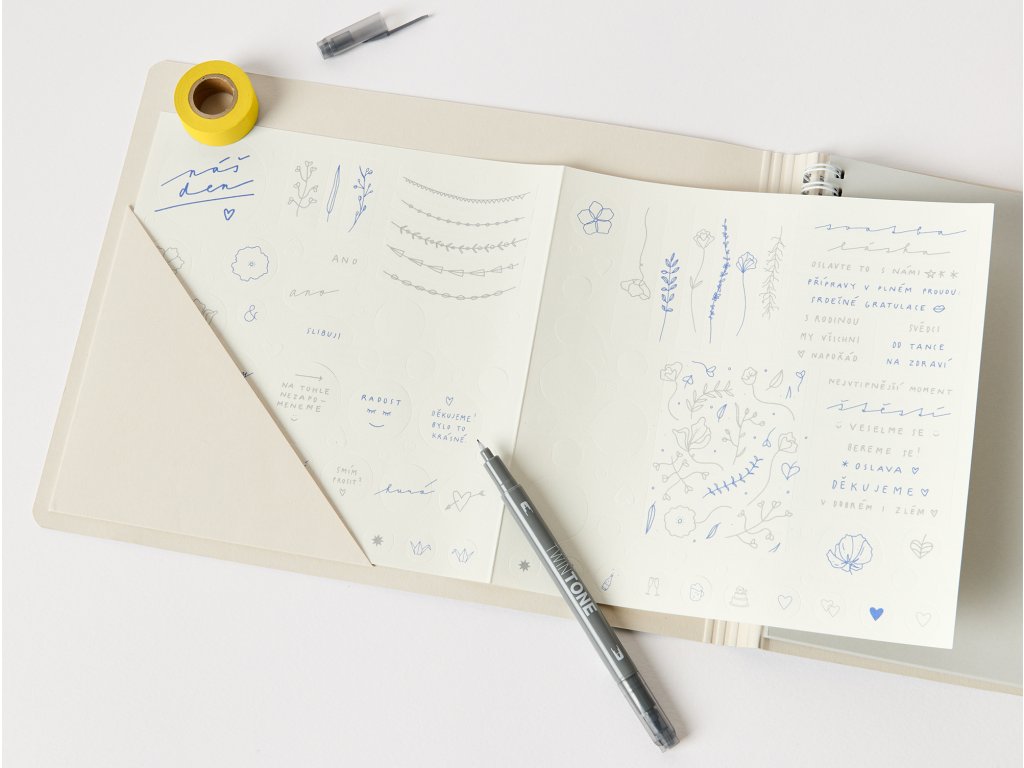 náš
den
ANO
ano
&
SLIBUJI
NA TOHLE
NEZAPO-
MENEME
RADOST
DĚKUJEME!
BYLO TO
KRÁSNÉ.
SMÍM
PROSIT?
svatba
láska
OSLAVTE TO S NÁMI
PŘÍPRAVY V PLNÉM PROUDU
SRDEČNÉ GRATULACE
S RODINOU
MY VŠICHNI
NAPOŘÁD
SVĚDCI
OD TANCE
NA ZDRAVÍ
NEJVTIPNĚJŠÍ MOMENT
štěstí
VESELME SE
BEREME SE!
* OSLAVA
DĚKUJEME
V DOBRÉM I ZLÉM
TWINTONE